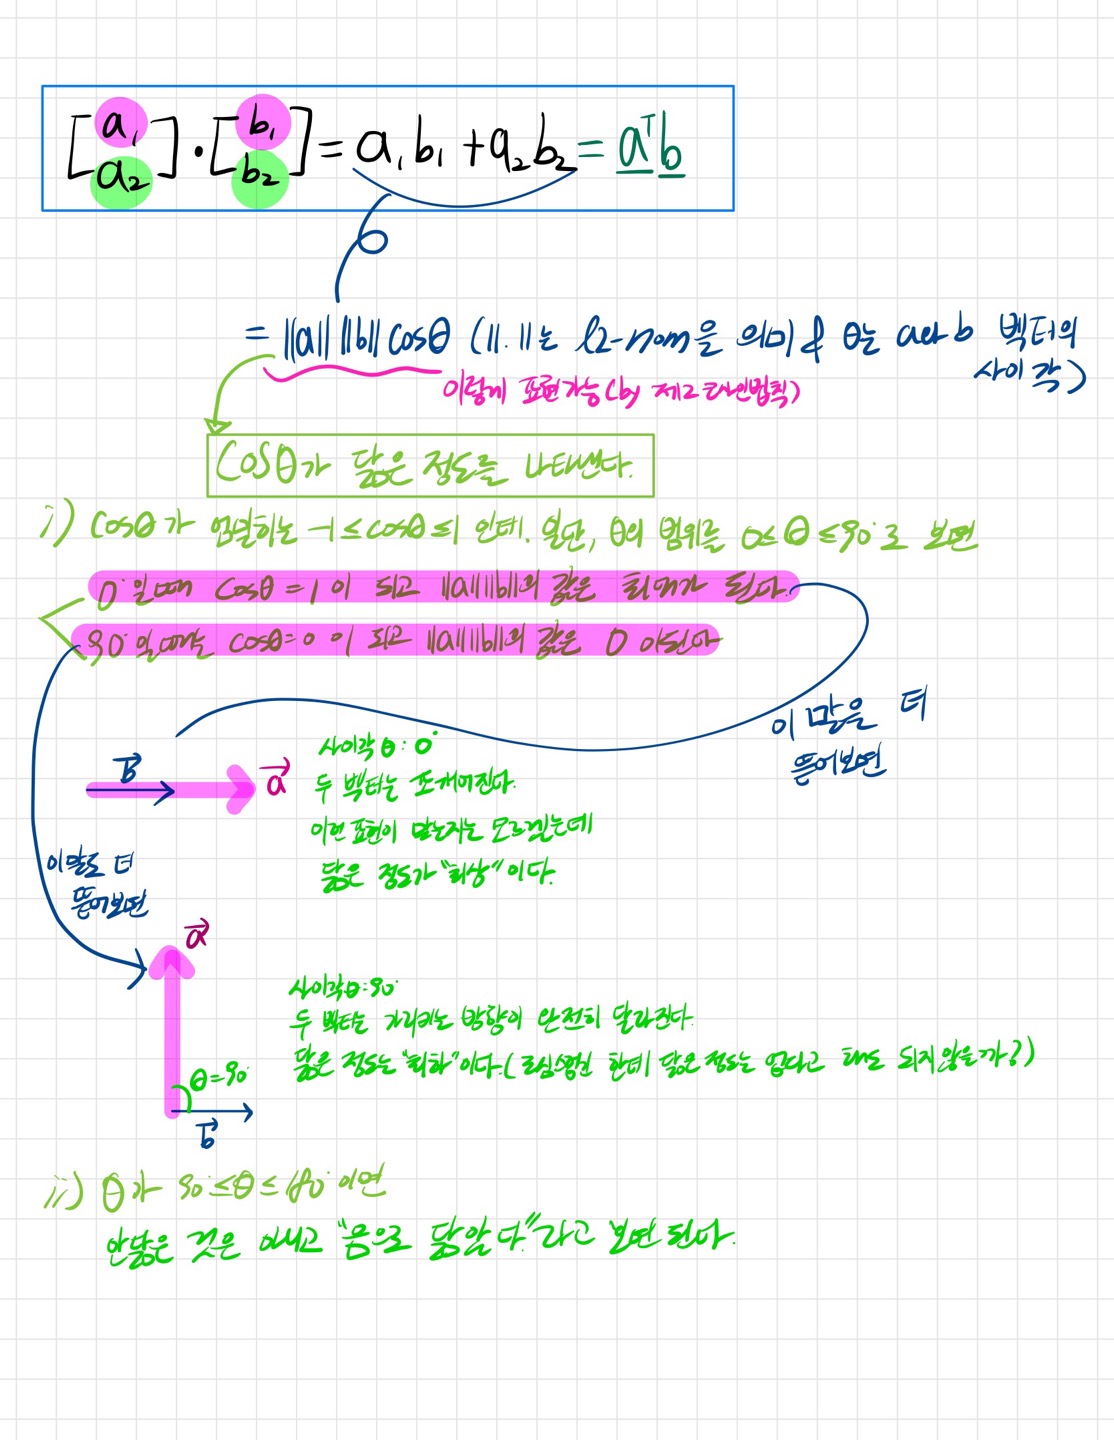 [a₁ a₂]·[b₁ b₂] = a₁b₁ + a₂b₂ = aᵀb
= ||a|| ||b|| cosθ (||.||는 l2-norm을 의미 & θ는 a와 b 벡터의
사이각)
이렇게 표현가능(by 제2코사인법칙)
cosθ가 닮은 정도를 나타낸다.
i) cosθ가 엄밀히는 -1≤cosθ≤1 인데. 일단, θ의 범위를 0≤θ≤90°로 보면
0°일때 cosθ=1이 되고 ||a|| ||b||의 값은 최대가 된다.
90°일때는 cosθ=0이 되고 ||a|| ||b||의 값은 0이된다
이 말을 더
뜯어보면
사이각 θ: 0°
두 벡터는 포개어진다.
이런 표현이 맞는지는 모르겠는데
닮은 정도가 "최상"이다.
b a
이말도 더
뜯어보면
a
사이각θ:90°
두 벡터는 가리키는 방향이 완전히 달라진다.
닮은 정도는 "최하"이다.( 한테 닮은 정도는 없다고 해도 되지않을까?)
θ=90°
b
ii) θ가 90°≤θ≤180°이면
안닮은 것은 아니고 "음으로 닮았다."라고 보면 된다.